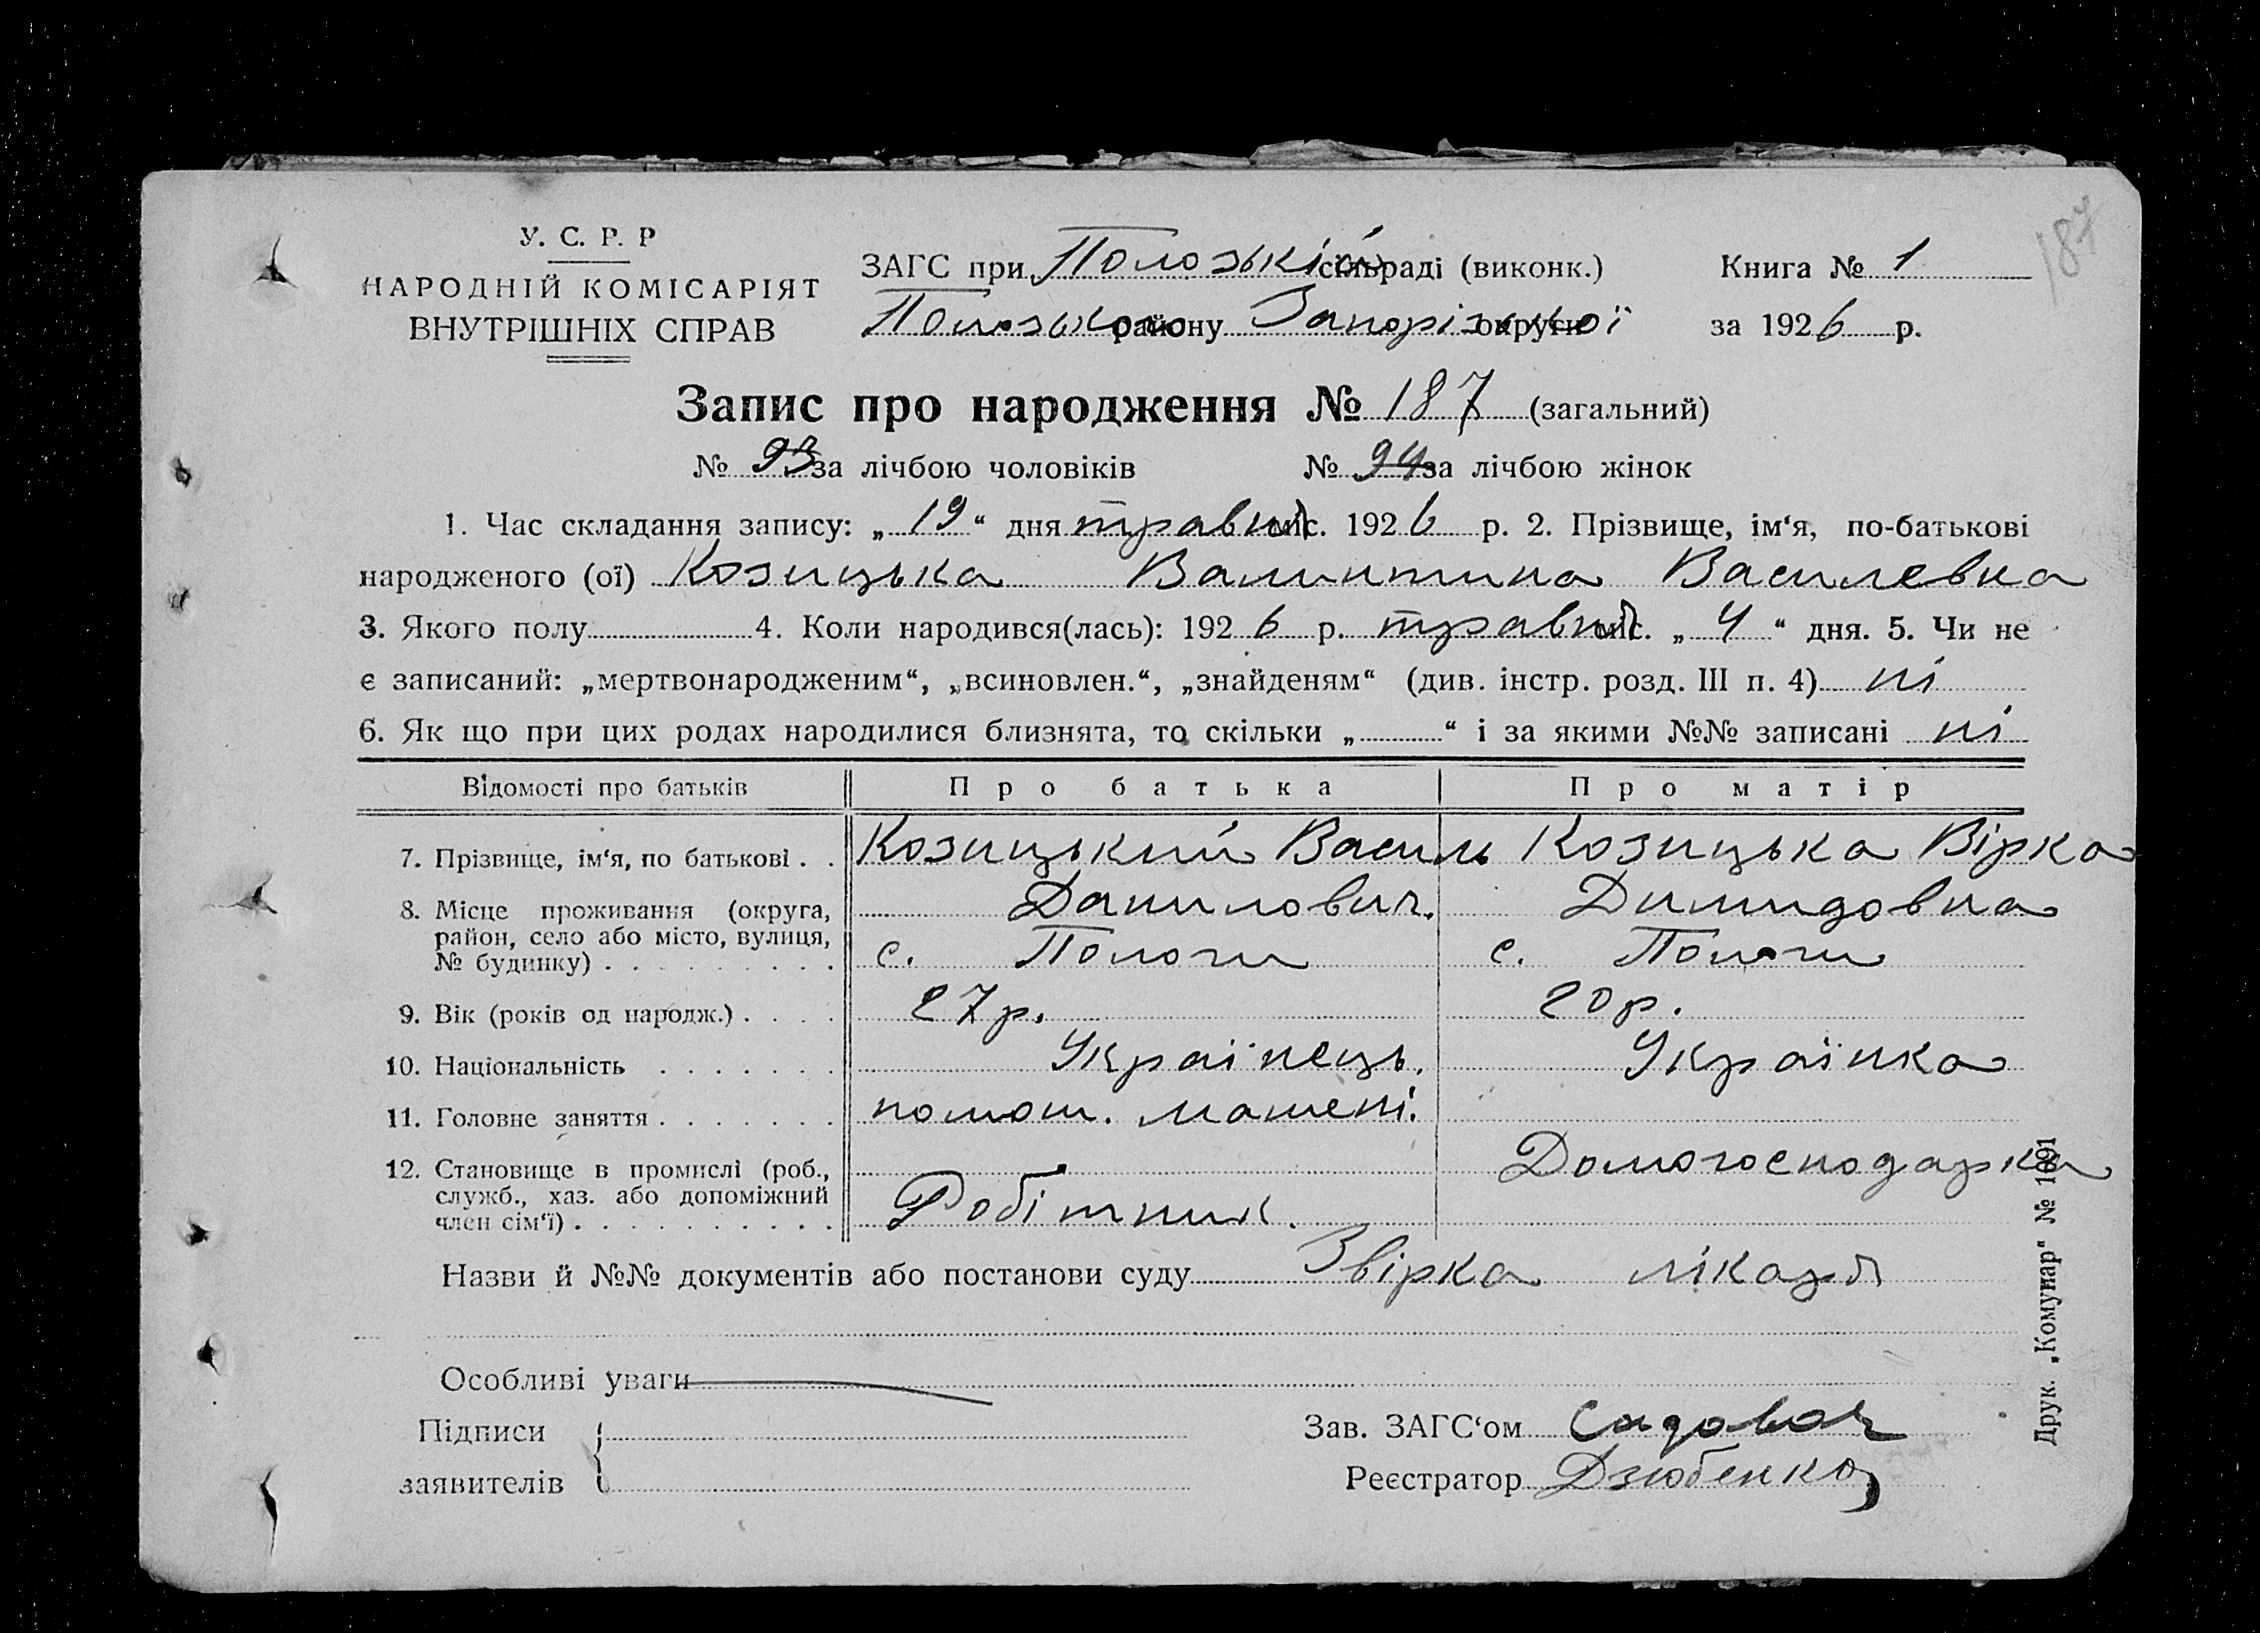 187
У. С. Р. Р
НАРОДНІЙ КОМІСАРІЯТ
ВНУТРІШНІХ СПРАВ
ЗАГС при Пологській сільраді (виконк.) Книга № 1
Пологського району Запорізької округи за 1926 р.
Запис про народження № 187 (загальний)
№ 93 за лічбою чоловіків № 94 за лічбою жінок
1. Час складання запису: „19“ дня травня міс. 1926 р. 2. Прізвище, ім‘я, по-батькові
народженого (ої) Козицька Валинтина Василевна
3. Якого полу 4. Коли народився(лась): 1926 р. травня міс. „4“ дня. 5. Чи не
є записаний: „мертвонародженим“, „всиновлен.“, „знайденям“ (див. інстр. розд. III п. 4) ні
6. Як що при цих родах народилися близнята, то скільки „ “ і за якими №№ записані ні
Відомості про батьків Про батька Про матір
7. Прізвище, ім‘я, по батькові . . Козицький Василь Козицька Вірка
Данилович. Димидовна
8. Місце проживання (округа,
район, село або місто, вулиця,
№ будинку) . . . . . . . . . с. Пологи с. Пологи
9. Вік (років од народж.) . . . . 27 р. 20 р.
10. Національність . . . . . . . Українець. Українка
11. Головне заняття . . . . . . . помош. машені.
12. Становище в промислі (роб., Домогосподарка
служб., хаз. або допоміжний
член сім‘ї) . . . . . . . . . . Робітник.
Назви й №№ документів або постанови суду Звірка лікаря
Особливі уваги
Підписи Зав. ЗАГС‘ом
заявителів Реєстратор Дзюбенко
Друк. „Комунар“ № 1091